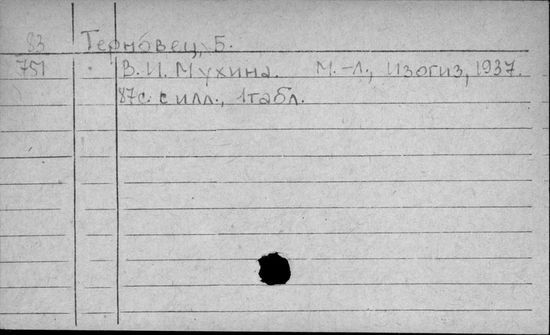 83 Терновец, Б.
751 В. И. Мухина. М.-Л., Изогиз, 1937.
87с. с илл., 1 табл.